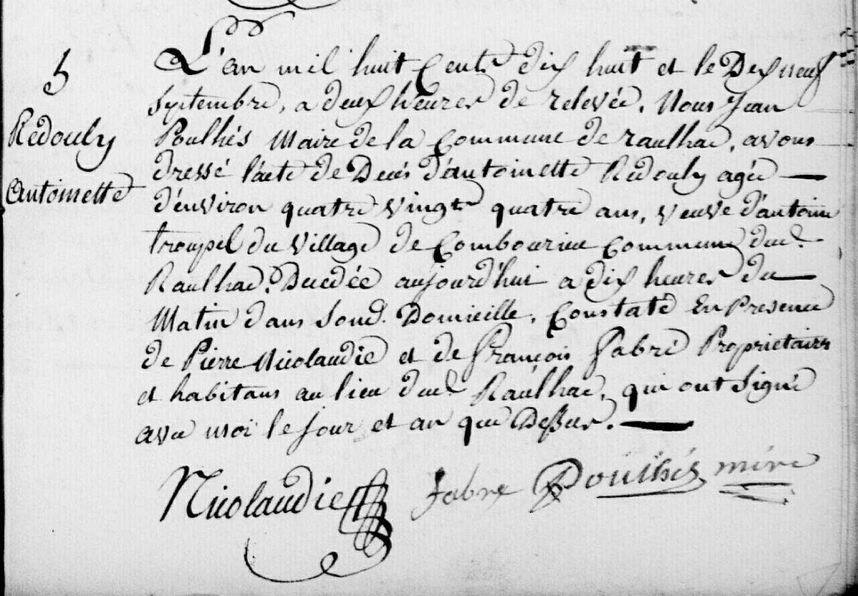 5
Redouly
antoinette
L'an mil huit Cents dix huit et le Dix neuf
septembre, a deux heures de relevée. Nous Jean
Poulhés Maire de la Commune de raulhac, avons
dressé l'acte de Decés d'antoinette Redouly agée
d'environ quatre vingt quatre ans, veuve d'antoine
troupel du village de Combourieu Commune dud.
Raulhac. Decedée aujourd'hui a dix heures du
Matin dans Sond. Domicille. Constaté En Presence
de Pierre Nicolaudie et de françois fabre Propriétaires
et habitans au lieu dud. Raulhac, qui ont Signé
avec moi le jour et an que Dessus.
Nicolaudie fabre Poulhés mére